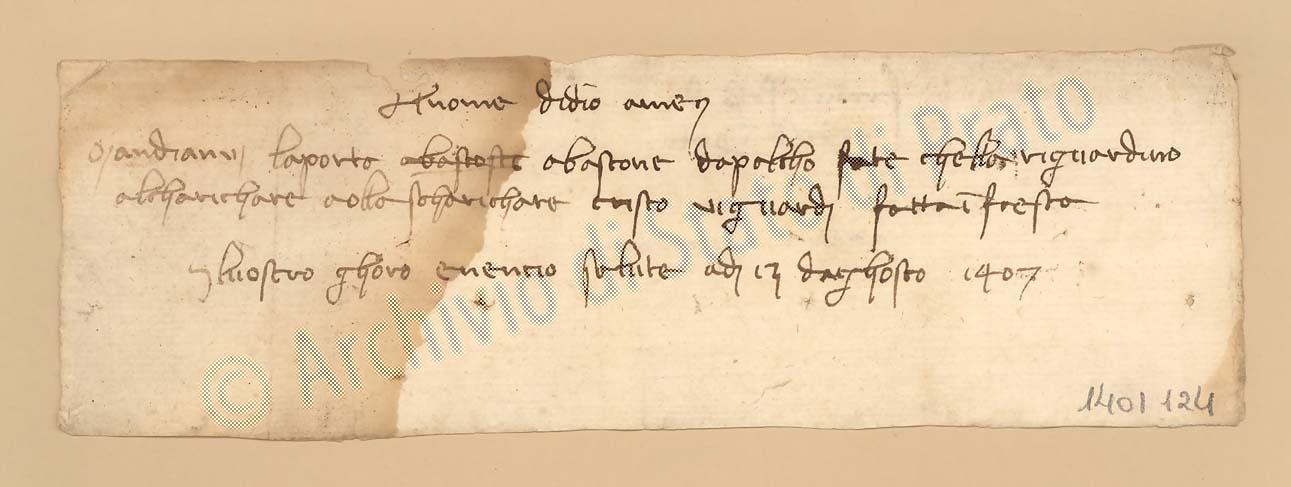 Al nome didio amen
Mandianvi laporto abastone dapalcho fate chello riguardino
alcharichare eallo scharichare cristo vi guardi fatta in fresta
Il vostro ghoro e nencio salute adj 12 daghosto 1407
1401 124
© Archivio di Stato di Prato